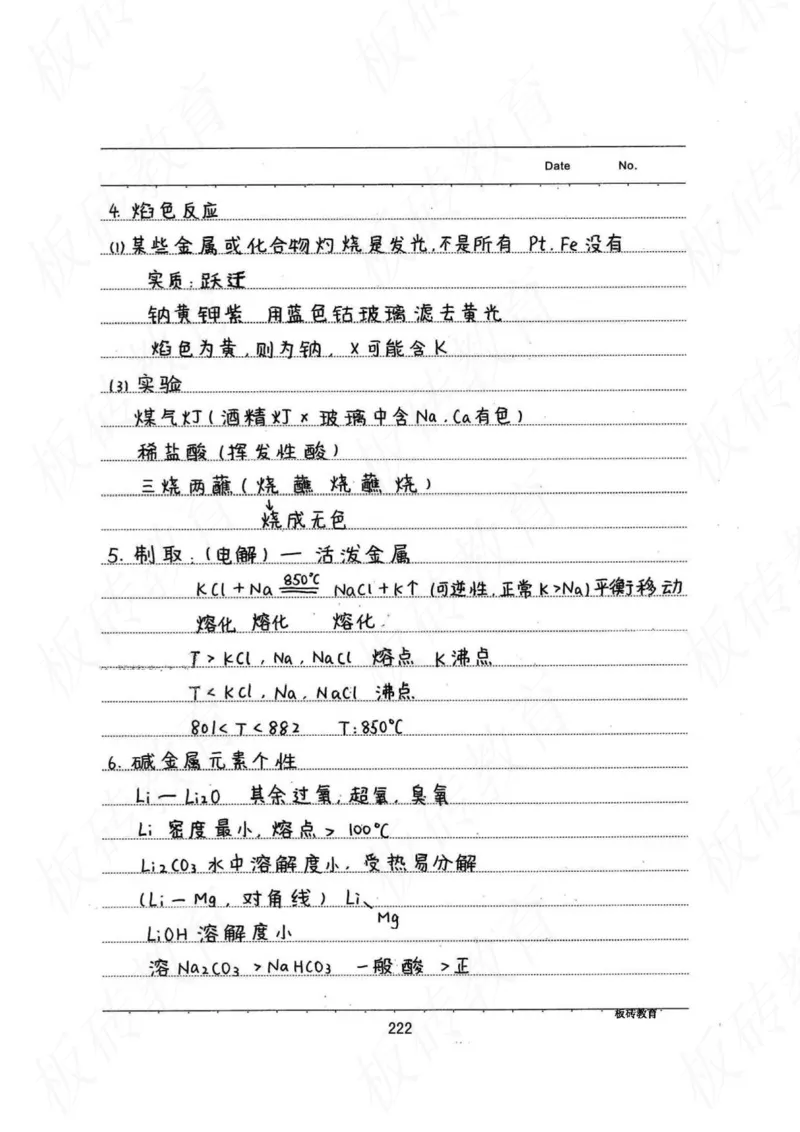 Date No.
4. 焰色反应
(1) 某些金属或化合物灼烧是发光,不是所有 Pt. Fe 没有
实质:跃迁
钠黄钾紫 用蓝色钴玻璃滤去黄光
焰色为黄,则为钠, x可能含K
(3) 实验
煤气灯(酒精灯 x 玻璃中含Na.Ca有色)
稀盐酸(挥发性酸)
三烧两蘸(烧 蘸 烧 蘸 烧)
↓
烧成无色
5. 制取:(电解)— 活泼金属
KCl + Na 850℃ NaCl + K↑ (可逆性,正常K>Na)平衡移动
熔化 熔化 熔化
T > KCl, Na, NaCl 熔点 K沸点
T < KCl, Na, NaCl 沸点.
801< T < 882 T:850℃
6. 碱金属元素个性
Li — Li2O 其余过氧,超氧,臭氧
Li 密度最小,熔点 > 100℃
Li2CO3 水中溶解度小,受热易分解
(Li — Mg, 对角线) Li
Mg
LiOH 溶解度小
溶 Na2CO3 > NaHCO3 一般酸 > 正
板砖教育
222